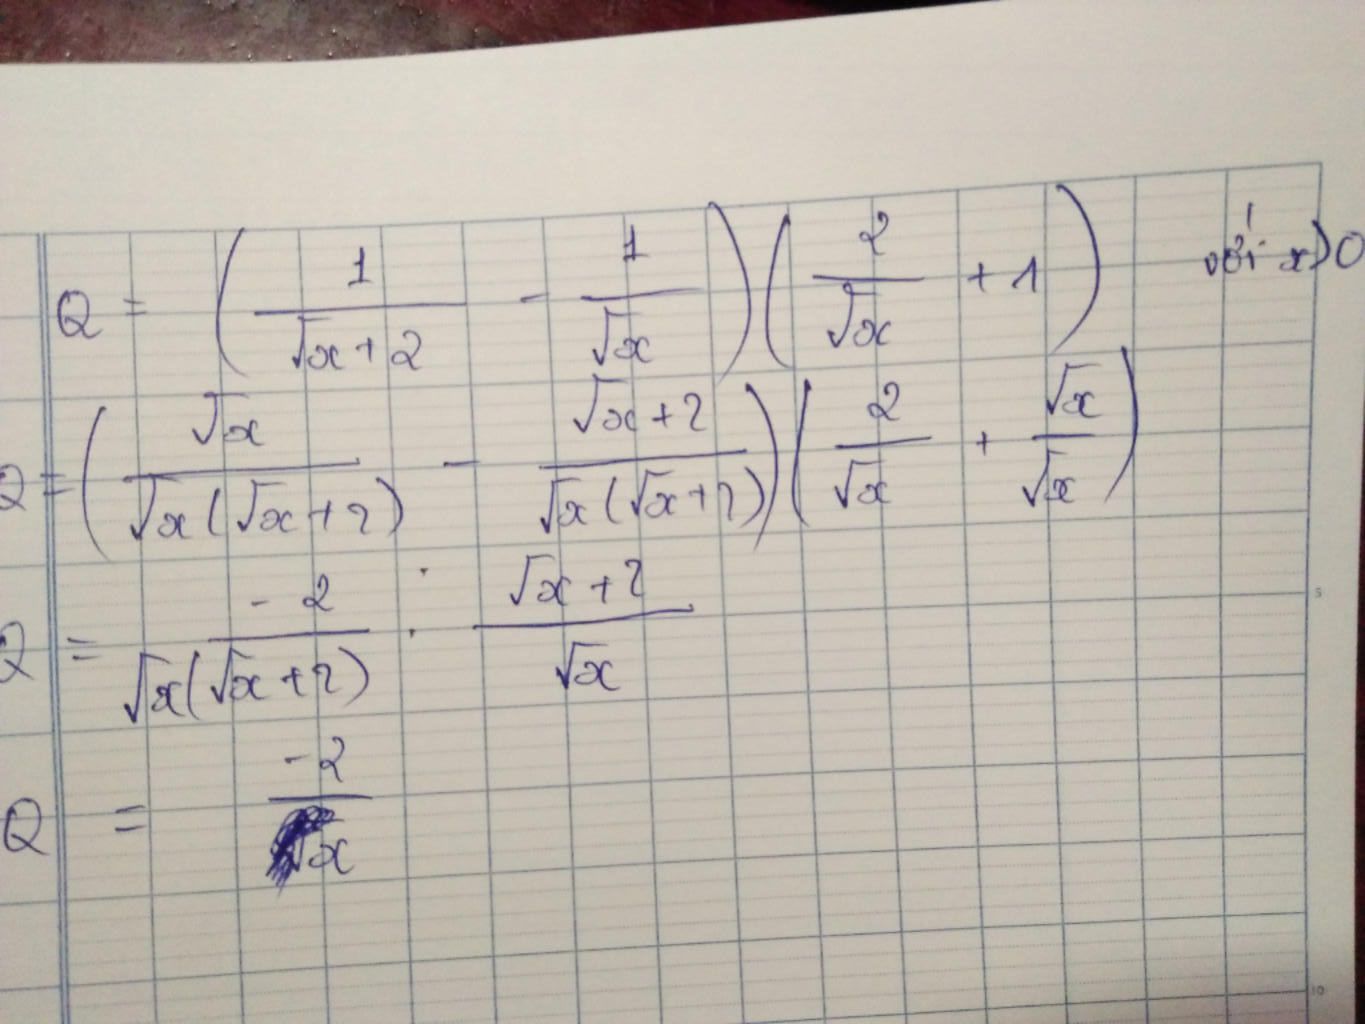 Q = ( 1/(√x + 2) - 1/√x ) ( 2/√x + 1 ) với x > 0
Q = ( √x/(√x(√x + 2)) - (√x + 2)/(√x(√x + 2)) ) ( 2/√x + √x/√x )
Q = -2/(√x(√x + 2)) . (√x + 2)/√x
Q = -2/x
5
10